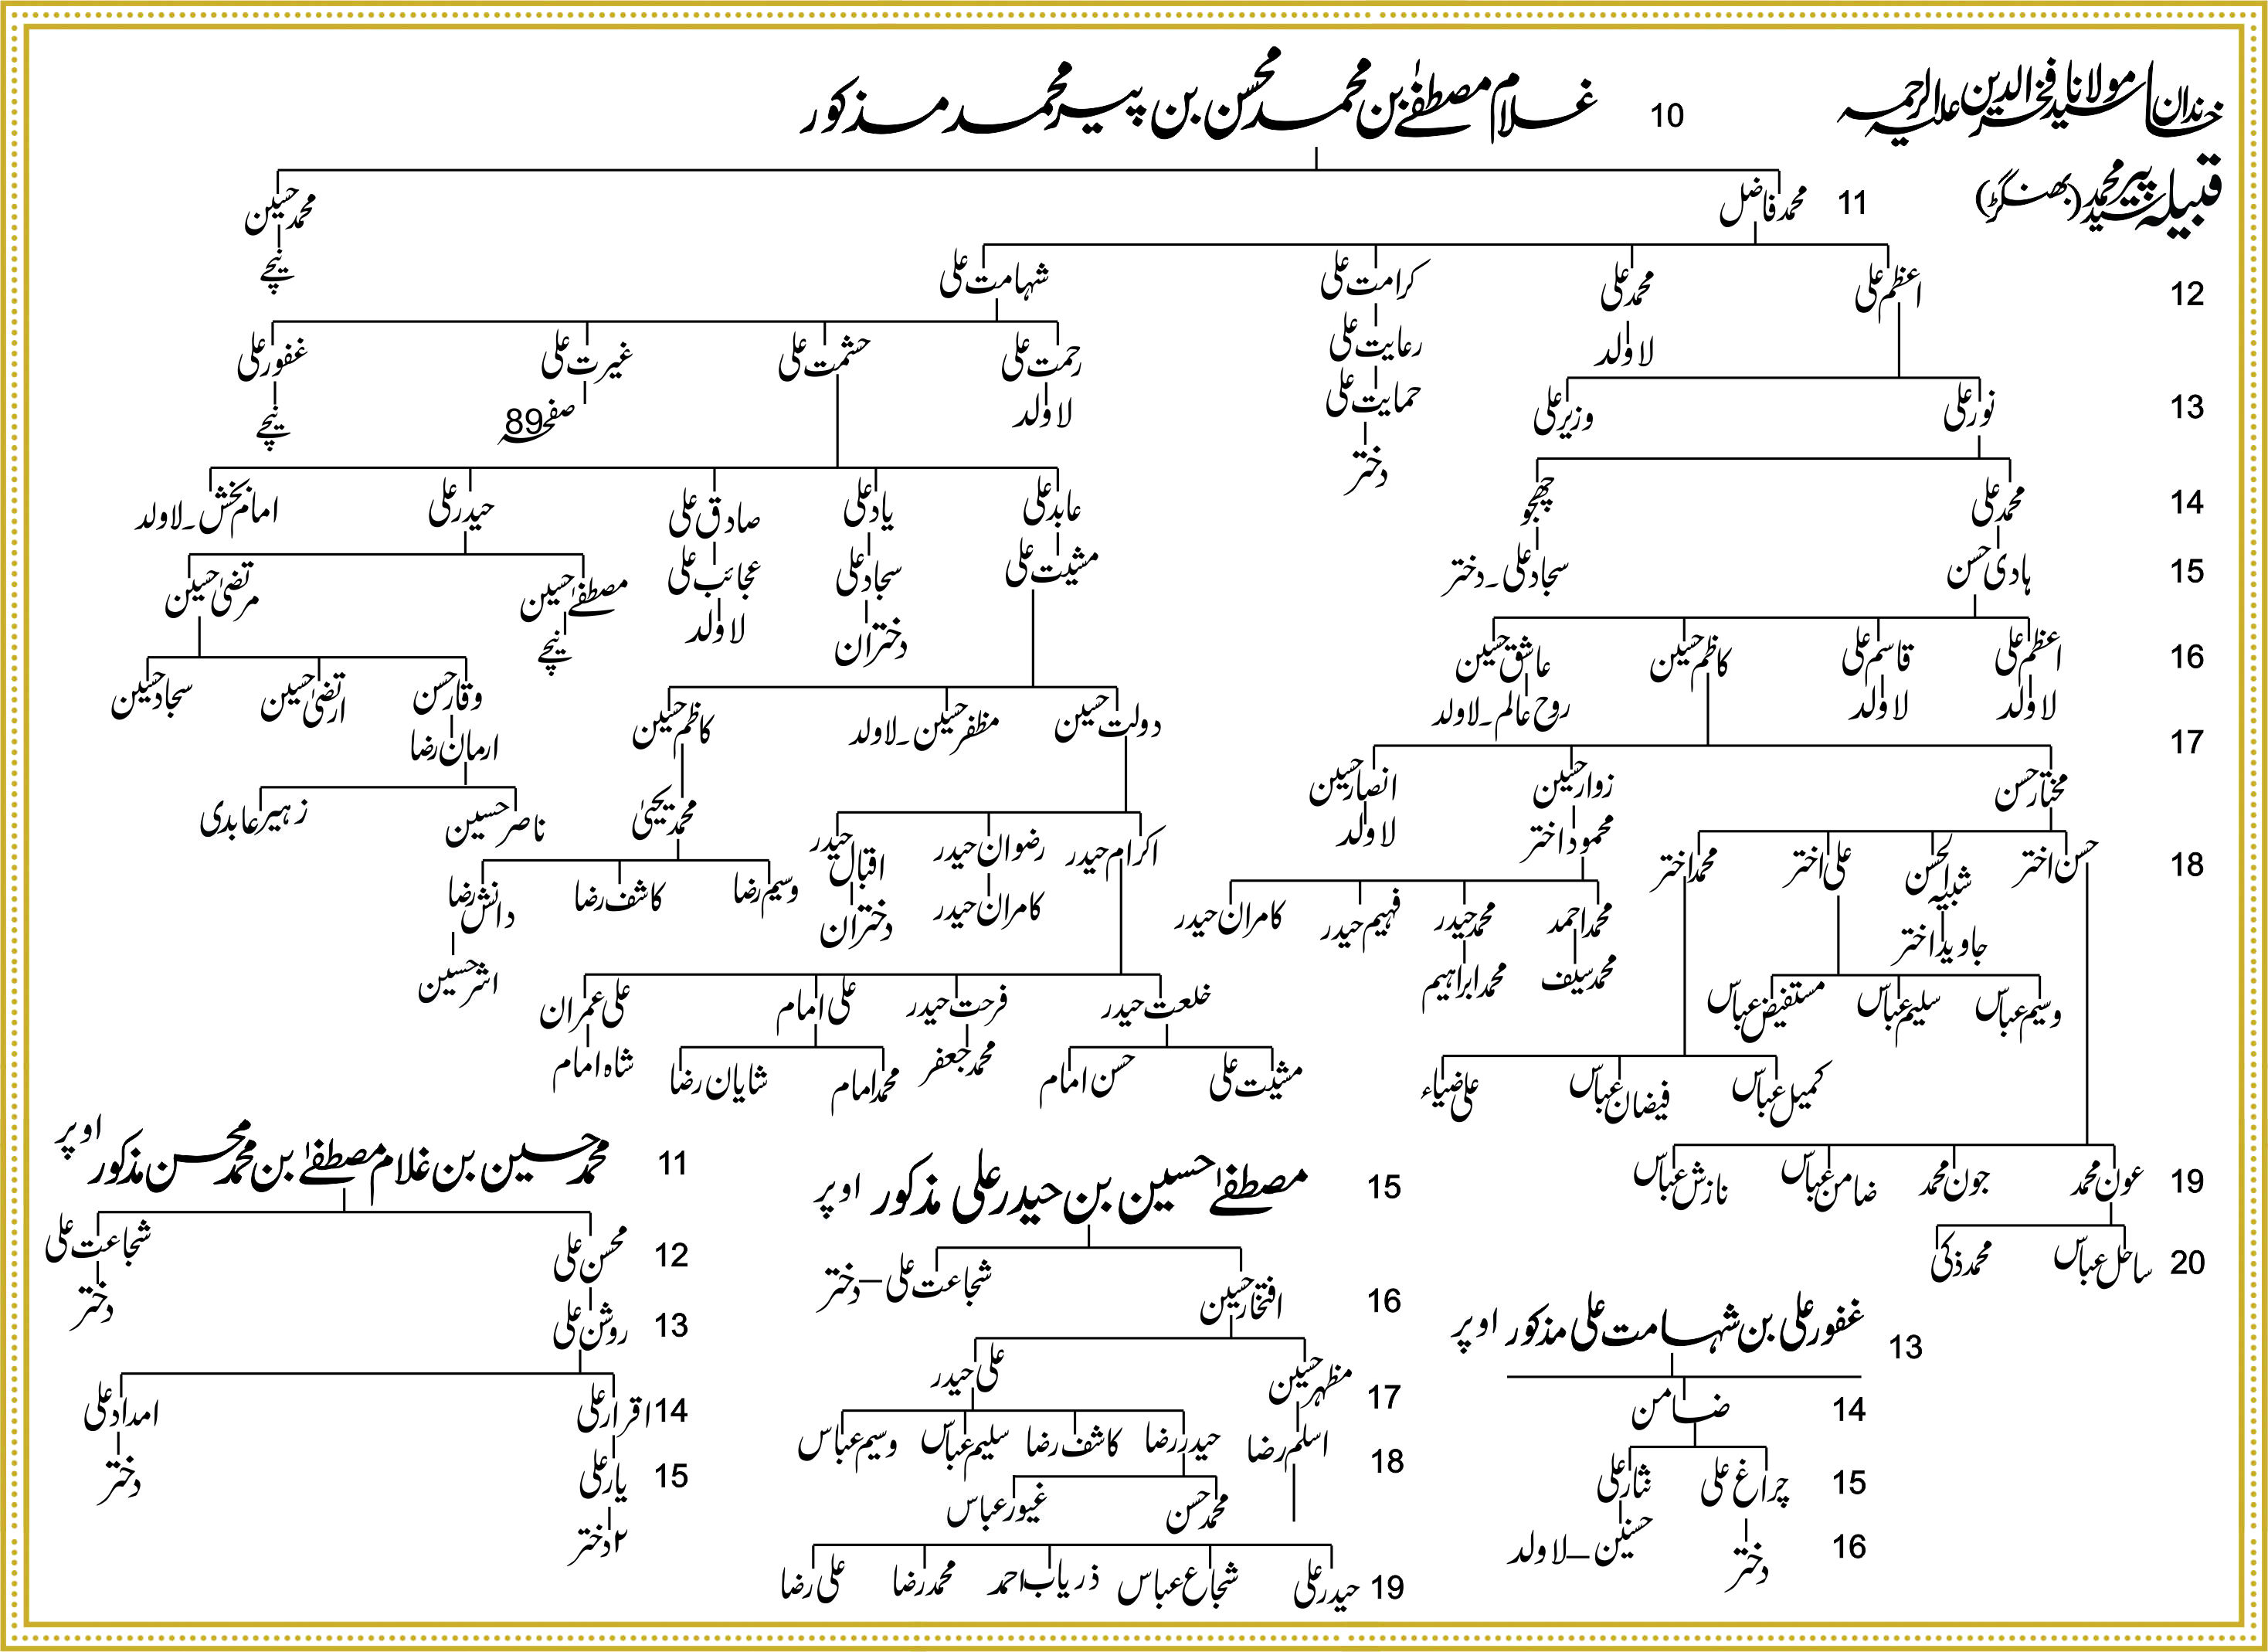 خاندان مولانا سید فخر الدین علیہ الرحمہ
10 غلام مصطفےٰ بن محمد محسن بن پیر محمد مذکور
قبیلہ سید پیر محمد (بھنگڑ)
11 محمد فاضل محمد حسین
نیچے
12 اعظم علی محمد علی کرامت علی شہامت علی
لاولد رعایت علی رحمت علی حشمت علی غیرت علی غفور علی
13 نور علی وزیر علی حمایت علی لاولد صفحہ 89 نیچے
دختر
14 محمد علی چھجو عابد علی یاد علی صادق علی حیدر علی امام بخش۔لاولد
15 ہادی حسن سجاد علی۔دختر مشیت علی سجاد علی عجائب علی مصطفےٰ حسین مرتضیٰ حسین
دختران لاولد نیچے
16 اعظم علی قاسم علی کاظم حسین عاشق حسین وقار حسن ارتضیٰ حسین سجاد حسین
لاولد لاولد روح عالم۔لاولد دولت حسین مظفر حسین۔لاولد کاظم حسین ارمان رضا
17 مختار حسن زوار حسین انصار حسین محمد یحییٰ ناصر حسین زہیر عابدی
محمود اختر لاولد
18 حسن اختر شبیہ الحسن علی اختر محمد اختر اکرام حیدر رضوان حیدر اقبال حیدر وسیم رضا کاشف رضا دانش رضا
جاوید اختر محمد احمد محمد حیدر فہیم حیدر کامران حیدر کامران حیدر دختران
محمد سیف محمد ابراہیم اشر حسین
وسیم عباس سلیم عباس مستفیض عباس خلعت حیدر فرحت حیدر علی امام علی عمران
کمیل عباس فیضان عباس علی ضیاء مشیت علی حسن امام محمد جعفر محمد امام شایان رضا شاہ امام
19 عون محمد جون محمد ضامن عباس نازش عباس
20 ساحل عباس محمد ذکی
13 غفور علی بن شہامت علی مذکور اوپر
14 ضامن
15 چراغ علی نثار علی
16 دختر حسنین—لاولد
15 مصطفےٰ حسین بن حیدر علی مذکور اوپر
16 افتخار حسین شجاعت علی—دختر
17 مظہر حسین علی حیدر
18 اسلم رضا حیدر رضا کاشف رضا سلیم عباس وسیم عباس
محمد حسن غیور عباس
19 حیدر علی شجاع عباس ذریاب احمد محمد رضا علی رضا
11 محمد حسین بن غلام مصطفےٰ بن محمد محسن مذکور اوپر
12 محسن علی شجاعت علی
دختر
13 روشن علی
14 اقرار علی امداد علی
15 یار علی دختر
۲ دختر